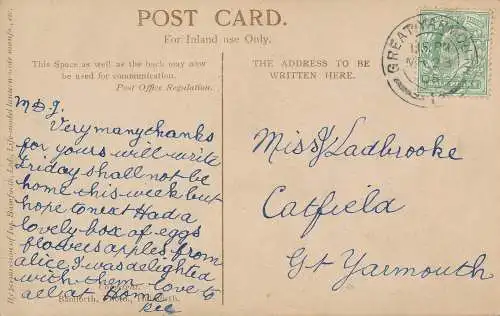 POST CARD.
For Inland use Only.
This Space as well as the back may now
be used for communication.
Post Office Regulation.
THE ADDRESS TO BE
WRITTEN HERE.
GREAT YARMOUTH
M D J.
Very many thanks
for yours will write
Friday shall not be
home this week but
hope to next Had a
lovely box of eggs
flowers apples from
alice I was delighted
with them love to
all at home
Miss J Ladbrooke
Catfield
Gt Yarmouth
By permission of
Bamforth,